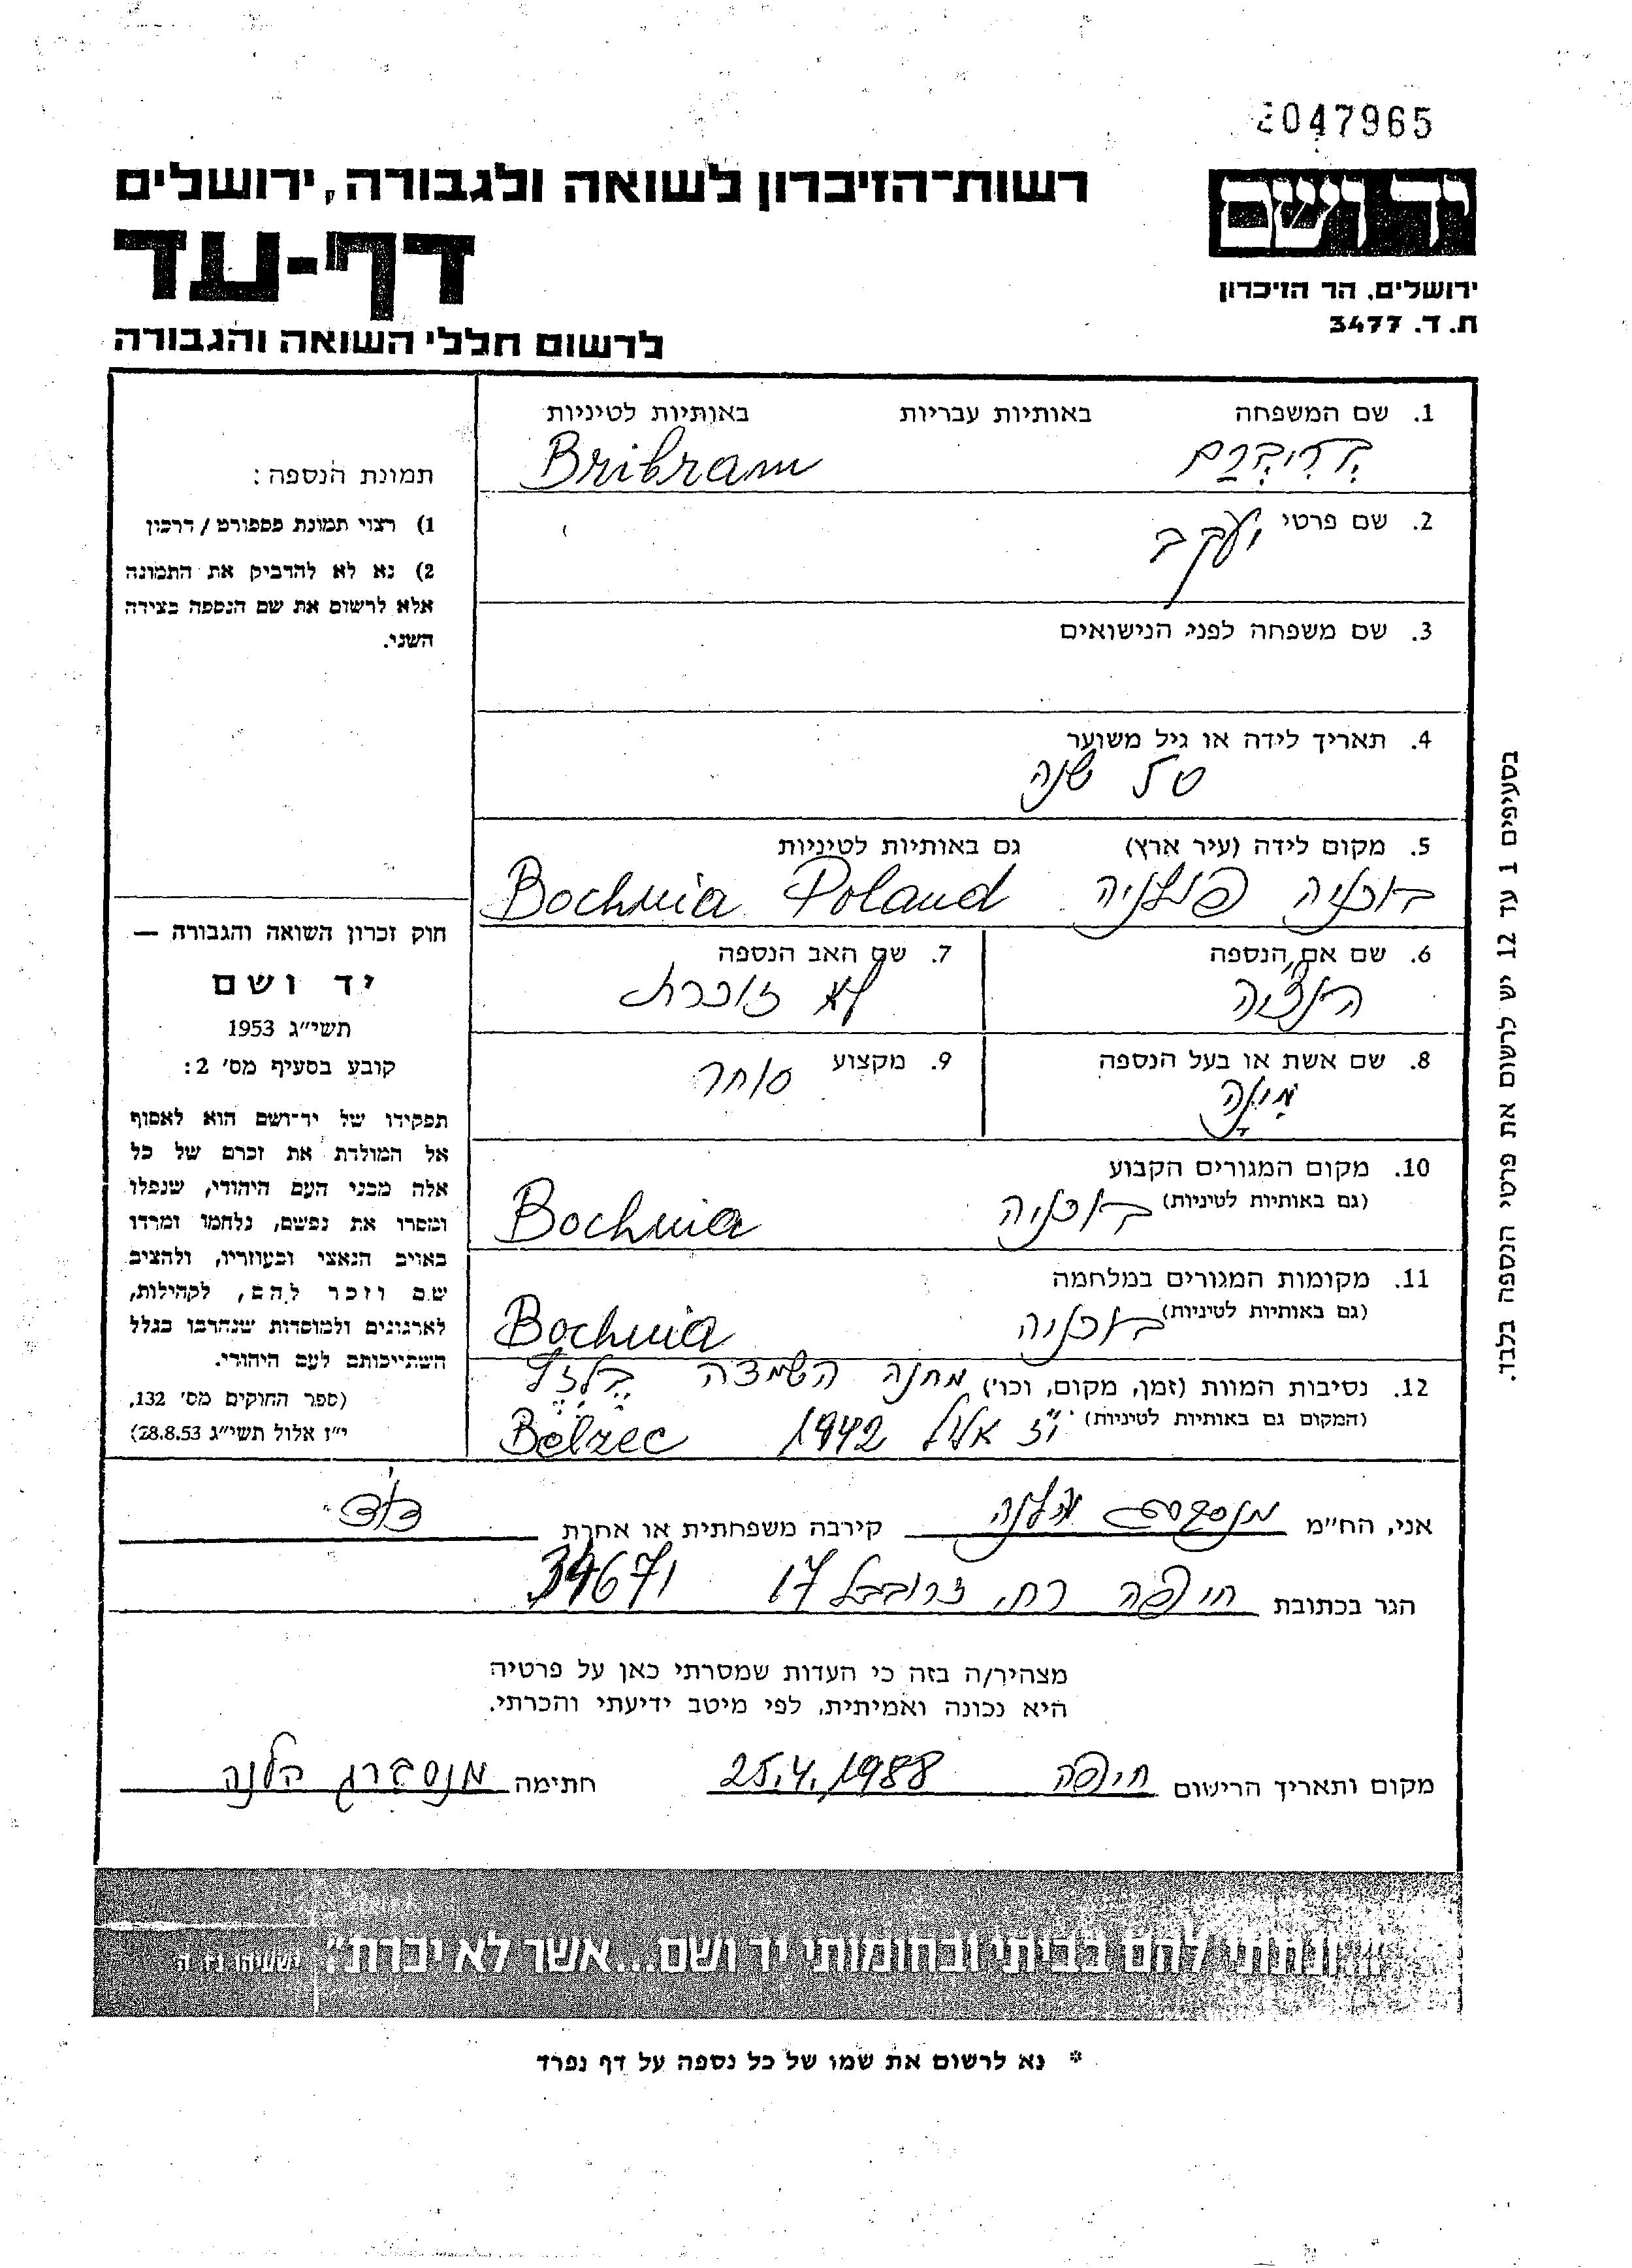 047965
יד ושם
רשות־הזיכרון לשואה ולגבורה, ירושלים
דף-עד
ירושלים, הר הזיכרון
ת. ד. 3477
לרשום חללי השואה והגבורה
1. שם המשפחה באותיות עבריות באותיות לטיניות
בְּרִיבְּרַם Bribram
2. שם פרטי יעקב
3. שם משפחה לפני הנישואים
4. תאריך לידה או גיל משוער
שנה
5. מקום לידה (עיר ארץ) גם באותיות לטיניות
בוכניה פולניה Bochnia Poland
6. שם אם הנספה 7. שם האב הנספה
לא זוכרת
8. שם אשת או בעל הנספה 9. מקצוע סוחר
מִינָה
10. מקום המגורים הקבוע
(גם באותיות לטיניות) בוכניה Bochnia
11. מקומות המגורים במלחמה
(גם באותיות לטיניות) בוכניה Bochnia
12. נסיבות המוות (זמן, מקום, וכו') מחנה השמצה
(המקום גם באותיות לטיניות) י"ז אלול 1942 Belzec
תמונת הנספה:
1) רצוי תמונת פספורט/דרכון
2) נא לא להדביק את התמונה
אלא לרשום את שם הנספה בצידה
השני.
חוק זכרון השואה והגבורה —
יד ושם
תשי״ג 1953
קובע בסעיף מס׳ 2:
תפקידו של יד־ושם הוא לאסוף
אל המולדת את זכרם של כל
אלה מבני העם היהודי, שנפלו
ומסרו את נפשם, נלחמו ומרדו
באויב הנאצי ובעוזריו, ולהציב
שם וזכר להם, לקהילות,
לארגונים ולמוסדות שנחרבו בגלל
השתייכותם לעם היהודי.
(ספר החוקים מס׳ 132,
י״ז אלול תשי״ג 28.8.53)
בסעיפים 1 עד 12 יש לרשום את פרטי הנספה בלבד.
אני, הח״מ מנסברג הלנה קירבה משפחתית או אחרת דוד
הגר בכתובת חיפה רח, זרובבל 17 34671
מצהיר/ה בזה כי העדות שמסרתי כאן על פרטיה
היא נכונה ואמיתית, לפי מיטב ידיעתי והכרתי.
מקום ותאריך הרישום חיפה 25.4.1988 חתימה מנסברג הלנה
״ונתתי להם בביתי ובחומותי יד ושם...אשר לא יכרת״ ישעיהו נו ה
* נא לרשום את שמו של כל נספה על דף נפרד